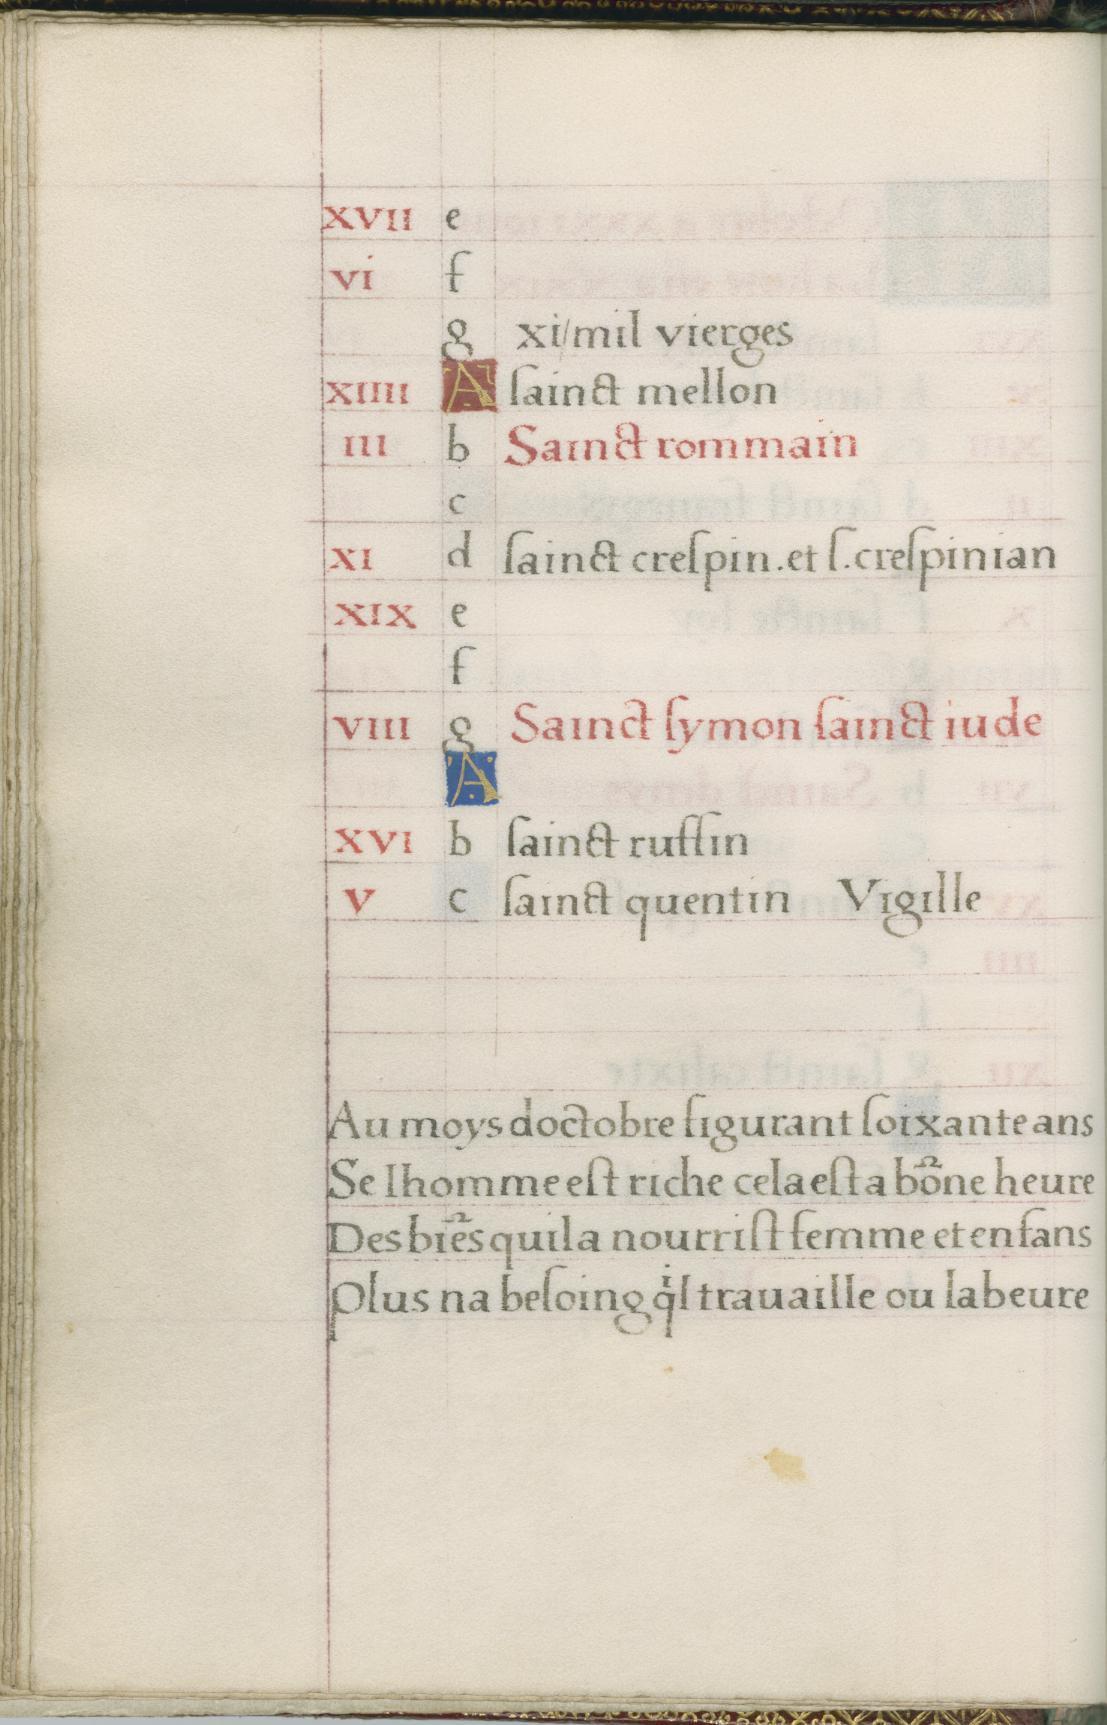 XVII e
VI f
g xi/mil vierges
XIIII A ſainct mellon
III b Sainct rommain
c
XI d ſainct creſpin.et ſ.creſpinian
XIX e
f
VIII g Sainct ſymon ſainct iude
A
XVI b ſainct ruffin
V c ſainct quentin Vigille
Au moys doctobre figurant ſoixante ans
Se lhomme eſt riche cela eſt a bõne heure
Des biẽs quil a nourriſt femme et enfans
Plus na beſoing q̇l trauaille ou labeure